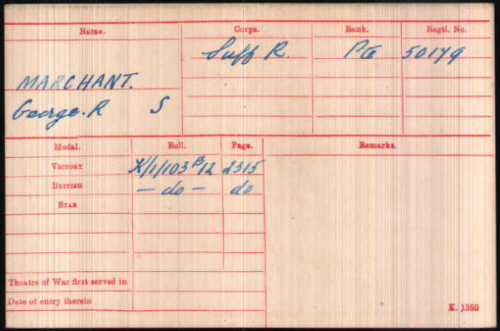 Name. Corps. Rank. Regtl. No.
Suff R. Pte 50179
MARCHANT.
George. R S
Medal. Roll. Page. Remarks.
VICTORY K/1/103 B12 2315
BRITISH — do — do
STAR
Theatre of War first served in
Date of entry therein
K. 1380